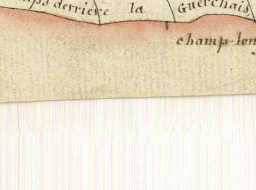 derriere la Guerchais
champ-lon